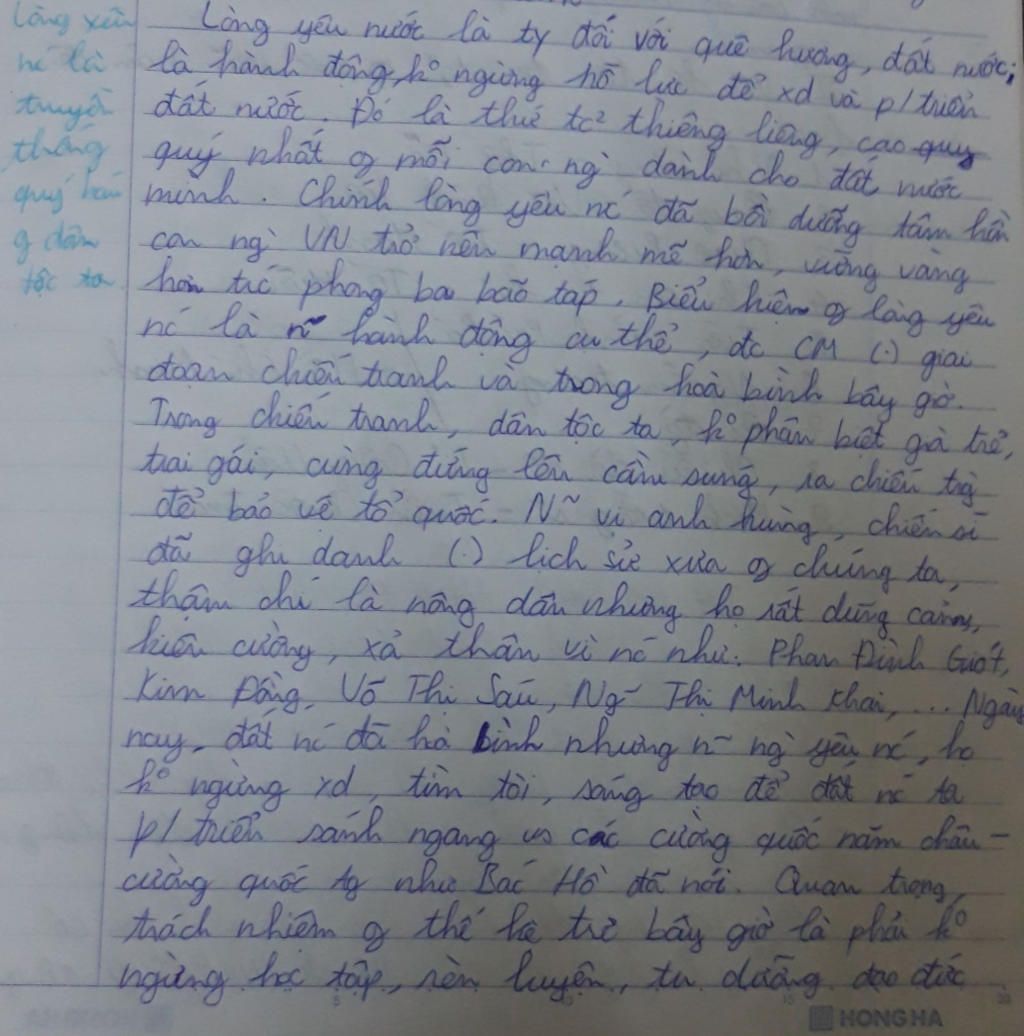 Lòng yêu nước là ty đối với quê hương, đất nước;
là hành động, ko ngừng nỗ lực để xd và p/triển
đất nước. Đó là thứ tc² thiêng liêng, cao quý
quý nhất g mỗi con ng` dành cho đất nước
mình. Chính lòng yêu nc' đã bồi dưỡng tâm hồn
con ng` VN trở nên mạnh mẽ hơn, vững vàng
hơn trc' phong ba bão táp. Biểu hiện g lòng yêu
nc' là n~ hành động cụ thể, đc CM (.) giai
đoạn chiến tranh và trong hoà bình bây giờ.
Trong chiến tranh, dân tộc ta, ko phân biệt già trẻ,
trai gái, cùng đứng lên cầm súng, ra chiến trg`
để bảo vệ tổ quốc. N~ vị anh hùng, chiến sĩ
đã ghi danh (.) lịch sử xưa g chúng ta,
thậm chí là nông dân nhưng họ rất dũng cảm,
kiên cường, xả thân vì nc' như: Phan Đình Giót,
Kim Đồng, Võ Thị Sáu, Ng~ Thị Minh Khai, ... Ngày
nay, đất nc' đã hoà bình nhưng n~ ng` yêu nc', họ
ko ngừng xd, tìm tòi, sáng tạo để đất nc' ta
p/triển sánh ngang vs các cường quốc năm châu -
cường quốc tg như Bác Hồ đã nói. Quan trọng,
trách nhiệm g thế hệ trẻ bây giờ là phải ko
ngừng học tập, rèn luyện, tu dưỡng đạo đức
Lòng yêu
nc' là
truyền
thống
quý báu
g dân
tộc ta.
HONG HA